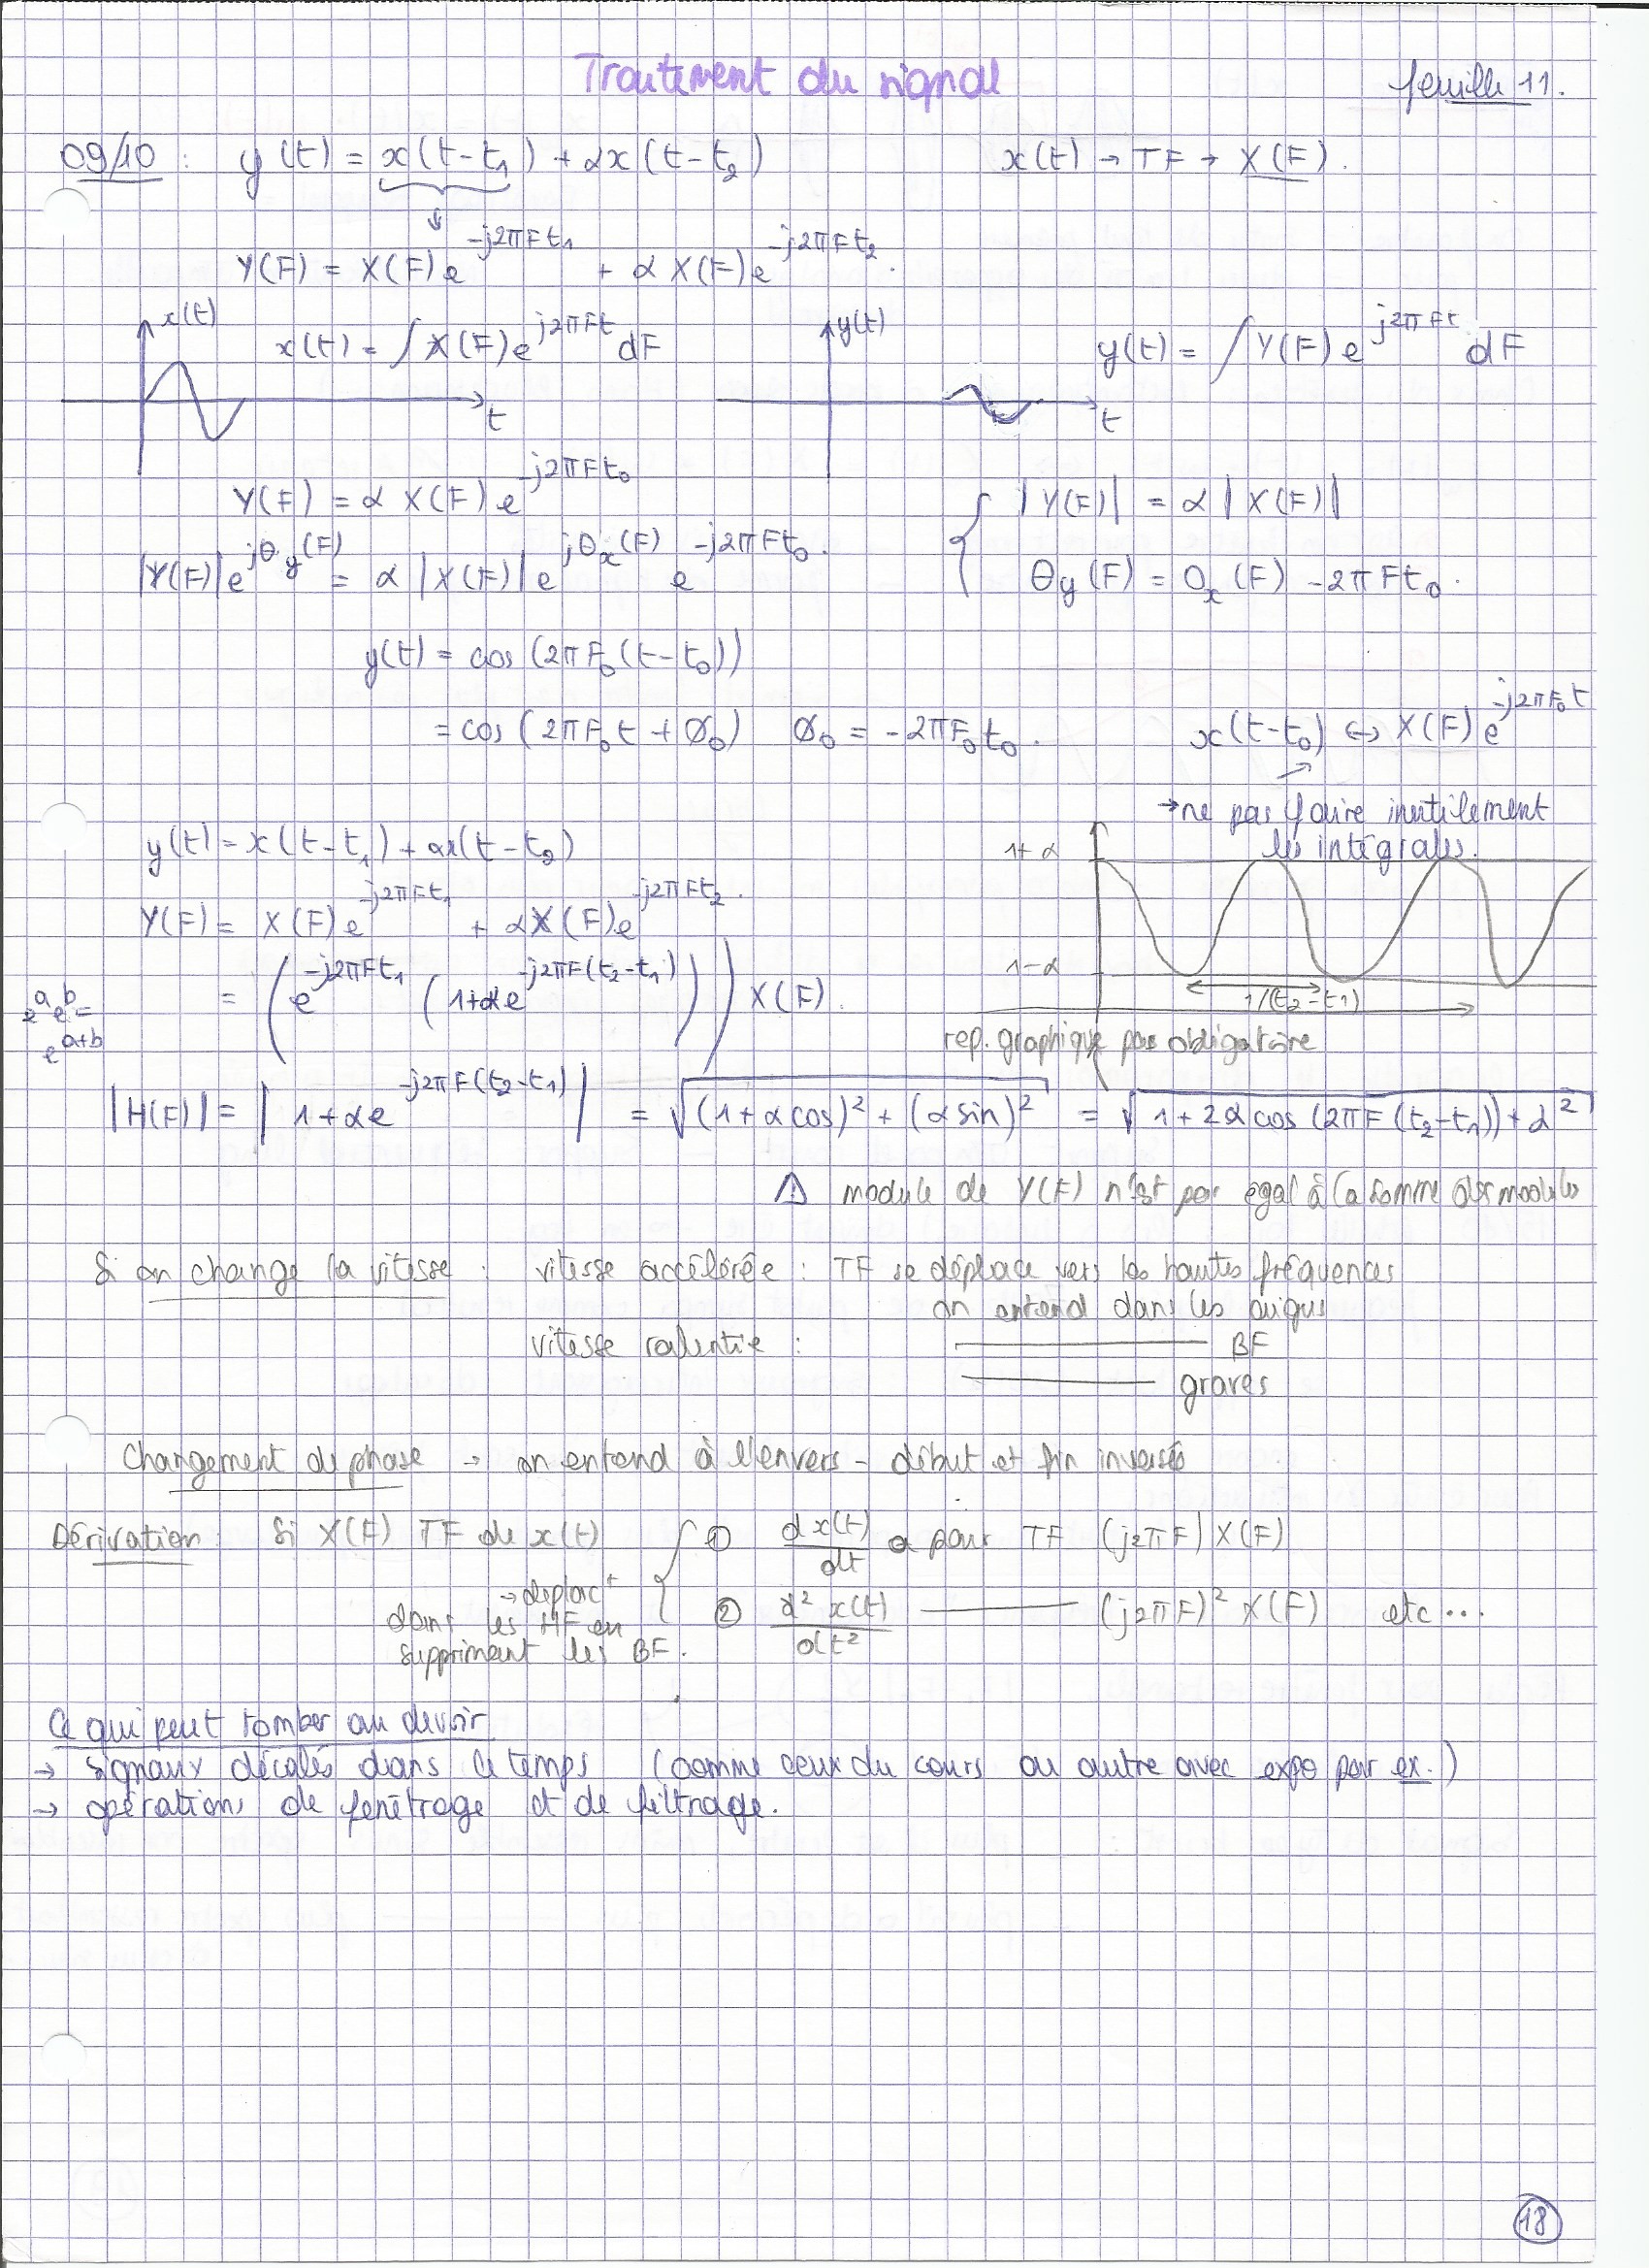 Traitement du signal
feuille 11.
09/10 : y(t) = x(t-t₁) + αx(t-t₂) x(t) → TF → X(F).
Y(F) = X(F)e^{-j2πFt₁} + α X(F)e^{-j2πFt₂}.
x(t) x(t) = ∫X(F)e^{j2πFt}dF y(t) y(t) = ∫Y(F)e^{j2πFt} dF
t t
Y(F) = α X(F) e^{-j2πFt₀} |Y(F)| = α |X(F)|
|Y(F)|e^{jθy(F)} = α |X(F)|e^{jθx(F)} e^{-j2πFt₀}. θy(F) = θx(F) -2πFt₀.
y(t) = cos (2πF₀(t-t₀))
= cos (2πF₀t + Ø₀) Ø₀ = -2πF₀t₀. x(t-t₀) ↔ X(F)e^{-j2πF₀t}
→ ne pas faire inutilement
les intégrales.
y(t) = x(t-t₁) + αx(t-t₂)
1+α
Y(F) = X(F)e^{-j2πFt₁} + αX(F)e^{-j2πFt₂}.
1-α
= (e^{-j2πFt₁} (1+αe^{-j2πF(t₂-t₁)})) X(F).
1/(t₂-t₁)
e^a e^b =
e^{a+b}
rep. graphique pas obligatoire
|H(F)| = |1+αe^{-j2πF(t₂-t₁)}| = √((1+α cos)² + (α sin)²) = √(1+2α cos (2πF(t₂-t₁)) + α²)
⚠ module de Y(F) n'est pas égal à la somme des modules
Si on change la vitesse : vitesse accélérée : TF se déplace vers les hautes fréquences
on entend dans les aigus
vitesse ralentie : ———— BF
———— graves
Changement de phase → on entend à l'envers - début et fin inversés
Dérivation Si X(F) TF de x(t) ① dx(t)/dt a pour TF (j2πF) X(F)
→ déplac^t
dans les HF en
② d²x(t)/dt² ———— (j2πF)² X(F) etc...
supprimant les BF.
Ce qui peut tomber au devoir
→ signaux décalés dans le temps (comme ceux du cours ou autre avec expo par ex.)
→ opérations de fenêtrage et de filtrage.
18